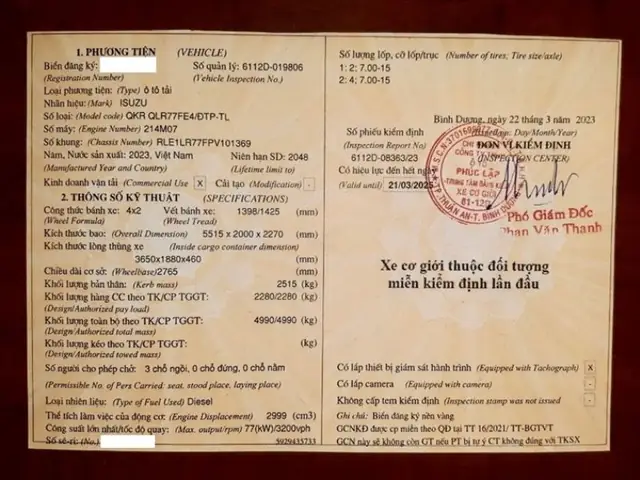 1. PHƯƠNG TIỆN (VEHICLE)
Biển đăng ký: Số quản lý: 6112D-019806
(Registration Number) (Vehicle Inspection No.)
Loại phương tiện: (Type) ô tô tải
Nhãn hiệu: (Mark) ISUZU
Số loại: (Model code) QKR QLR77FE4/ĐTP-TL
Số máy: (Engine Number) 214M07
Số khung: (Chassis Number) RLE1LR77FPV101369
Năm, Nước sản xuất: 2023, Việt Nam Niên hạn SD: 2048
(Manufactured Year and Country) (Lifetime limit to)
Kinh doanh vận tải (Commercial Use) x Cải tạo (Modification) -
2. THÔNG SỐ KỸ THUẬT (SPECIFICATIONS)
Công thức bánh xe: 4x2 Vết bánh xe: 1398/1425 (mm)
(Wheel Formula) (Wheel Tread)
Kích thước bao: (Overall Dimension) 5515 x 2000 x 2270 (mm)
Kích thước lòng thùng xe (Inside cargo container dimension)
3650x1880x460 (mm)
Chiều dài cơ sở: (Wheelbase) 2765 (mm)
Khối lượng bản thân: (Kerb mass) 2515 (kg)
Khối lượng hàng CC theo TK/CP TGGT: 2280/2280 (kg)
(Design/Authorized pay load)
Khối lượng toàn bộ theo TK/CP TGGT: 4990/4990 (kg)
(Design/Authorized total mass)
Khối lượng kéo theo TK/CP TGGT: (kg)
(Design/Authorized towed mass)
Số người cho phép chở: 3 chỗ ngồi, 0 chỗ đứng, 0 chỗ nằm
(Permissible No. of Pers Carried: seat, stood place, laying place)
Loại nhiên liệu: (Type of Fuel Used) Diesel
Thể tích làm việc của động cơ: (Engine Displacement) 2999 (cm3)
Công suất lớn nhất/tốc độ quay: (Max. output/rpm) 77(kW)/3200vph
Số sê-ri: (No.) 5929435733
Số lượng lốp, cỡ lốp/trục (Number of tires; Tire size/axle)
1: 2; 7.00-15
2: 4; 7.00-15
Bình Dương, ngày 22 tháng 3 năm 2023
Day/Month/Year)
Số phiếu kiểm định ĐƠN VỊ KIỂM ĐỊNH
(Inspection Report No) (INSPECTION CENTER)
6112D-08363/23
Có hiệu lực đến hết ngày
(Valid until) 21/03/2025
PHÚC LẬP
TRUNG TÂM ĐĂNG KIỂM
XE CƠ GIỚI
61-12D
Phó Giám Đốc
Phan Văn Thanh
Xe cơ giới thuộc đối tượng
miễn kiểm định lần đầu
Có lắp thiết bị giám sát hành trình (Equipped with Tachograph) x
Có lắp camera (Equipped with camera) -
Không cấp tem kiểm định (Inspection stamp was not issued) -
Ghi chú: Biển đăng ký nền vàng
GCNKĐ được cp miễn theo QĐ tại TT 16/2021/ TT-BGTVT
GCN này sẽ không còn GT nếu PT bị tự ý CT không đúng với TKSX